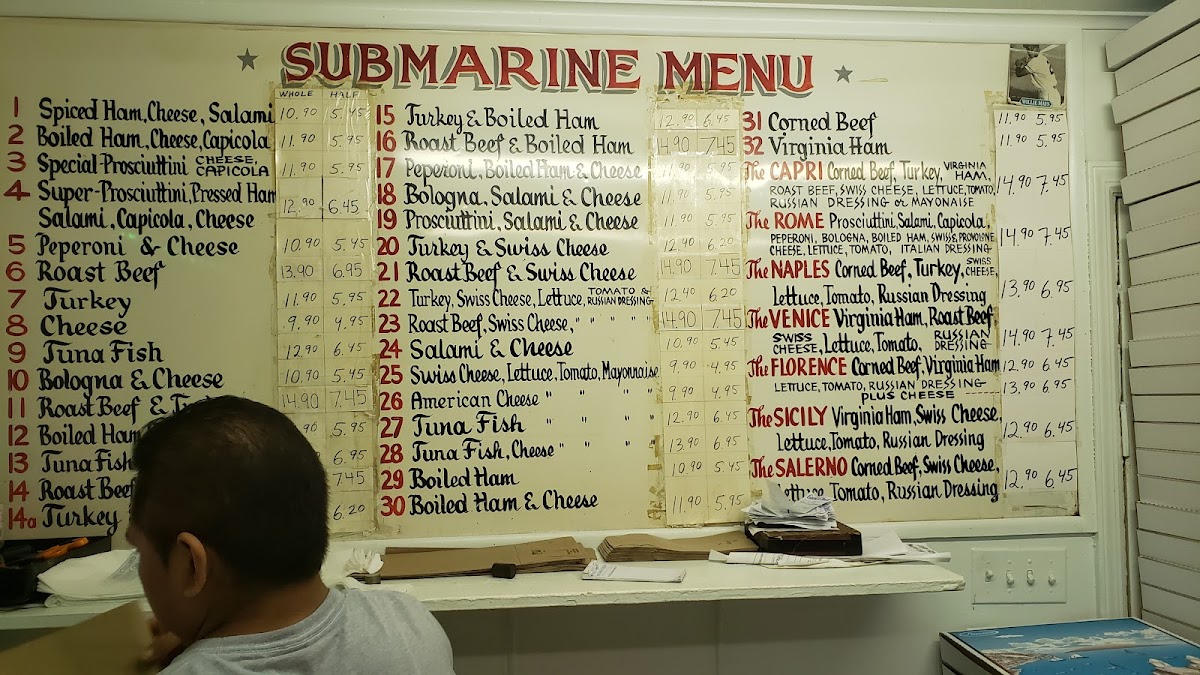 SUBMARINE MENU
WHOLE HALF
1 Spiced Ham, Cheese, Salami 10.90 5.45
2 Boiled Ham, Cheese, Capicola 11.90 5.95
3 Special-Prosciuttini CHEESE, CAPICOLA 11.90 5.95
4 Super-Prosciuttini, Pressed Ham
Salami, Capicola, Cheese 12.90 6.45
5 Peperoni & Cheese 10.90 5.45
6 Roast Beef 13.90 6.95
7 Turkey 11.90 5.95
8 Cheese 9.90 4.95
9 Tuna Fish 12.90 6.45
10 Bologna & Cheese 10.90 5.45
11 Roast Beef & 14.90 7.45
12 Boiled Ham 5.95
13 Tuna Fish 6.95
14 Roast Beef 745
14a Turkey 6.20
15 Turkey & Boiled Ham 12.90 6.45
16 Roast Beef & Boiled Ham 14.90 745
17 Peperoni, Boiled Ham & Cheese 11.90 5.95
18 Bologna, Salami & Cheese 11.90 5.95
19 Prosciuttini, Salami & Cheese 11.90 5.95
20 Turkey & Swiss Cheese 12.40 6.20
21 Roast Beef & Swiss Cheese 14.90 745
22 Turkey, Swiss Cheese, Lettuce, TOMATO & RUSSIAN DRESSING 12.40 6.20
23 Roast Beef, Swiss Cheese, " " " " 14.90 745
24 Salami & Cheese 10.90 5.45
25 Swiss Cheese, Lettuce, Tomato, Mayonnaise 9.90 4.95
26 American Cheese " " " 9.90 4.95
27 Tuna Fish " " " 12.90 6.45
28 Tuna Fish, Cheese " " " 13.90 6.95
29 Boiled Ham 10.90 5.45
30 Boiled Ham & Cheese 11.90 5.95
31 Corned Beef 11.90 5.95
32 Virginia Ham 11.90 5.95
The CAPRI Corned Beef, Turkey, VIRGINIA HAM,
ROAST BEEF, SWISS CHEESE, LETTUCE, TOMATO, 14.90 7.45
RUSSIAN DRESSING or MAYONAISE
The ROME Prosciuttini, Salami, Capicola,
PEPERONI, BOLOGNA, BOILED HAM, SWISS & PROVOLONE 14.90 7.45
CHEESE, LETTUCE, TOMATO, ITALIAN DRESSING
The NAPLES Corned Beef, Turkey, SWISS CHEESE,
Lettuce, Tomato, Russian Dressing 13.90 6.95
The VENICE Virginia Ham, Roast Beef,
SWISS CHEESE, Lettuce, Tomato, RUSSIAN DRESSING 14.90 7.45
The FLORENCE Corned Beef, Virginia Ham 12.90 6.45
LETTUCE, TOMATO, RUSSIAN DRESSING 13.90 6.95
PLUS CHEESE
The SICILY Virginia Ham, Swiss Cheese,
Lettuce, Tomato, Russian Dressing 12.90 6.45
The SALERNO Corned Beef, Swiss Cheese,
Lettuce, Tomato, Russian Dressing 12.90 6.45
WILLIE MAYS